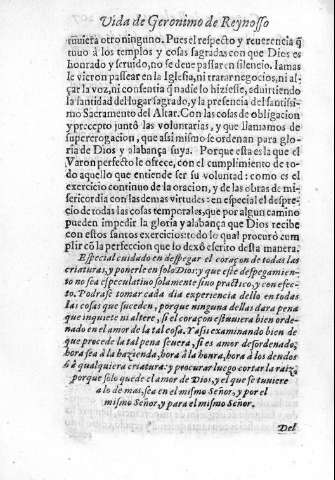 Vida de Geronimo de Reynosso
tuuiera otro ninguno. Pues el respecto y reuerencia q̃
tuuo à los templos y cosas sagradas con que Dios es
honrado y seruido, no se deue passar en silencio. Iamas
le vieron passear en la Iglesia, ni tratar negocios, ni al-
çar la voz, ni consentia q̃ nadie lo hiziesse, aduirtiendo
la santidad del lugar sagrado, y la presencia del santissi-
mo Sacramento del Altar. Con las cosas de obligacion
y precepto juntò las voluntarias, y que llamamos de
supererogacion, que assi mismo se ordenan para glo-
ria de Dios y alabança suya. Porque esta es la que el
Varon perfecto le ofrece, con el cumplimiento de to-
do aquello que entiende ser su voluntad: como es el
exercicio continuo de la oracion, y de las obras de mi-
sericordia con las demas virtudes: en especial el despre-
cio de todas las cosas temporales, que por algun camino
pueden impedir la gloria y alabança que Dios recibe
con estos santos exercicios: todo lo qual procurò cum-
plir cõ la perfeccion que lo dexò escrito desta manera.
Especial cuidado en despegar el coraçon de todas las
criaturas, y ponerle en solo Dios: y que este despegamien-
to no sea especulatiuo solamente sino practico, y con efec-
to. Podrase tomar cada dia experiencia dello en todas
las cosas que suceden, porque ninguna dellas dara pena
que inquiete ni altere, si el coraçon estuuiera bien orde-
nado en el amor de la tal cosa. Y assi examinando bien de
que procede la tal pena seuera, si es amor desordenado,
hora sea à la hazienda, hora à la honra, hora à los deudos
ò à qualquiera criatura: y procurar luego cortar la raiz,
porque solo quede el amor de Dios, y el que se tuuiere
a lo demas, sea en el mismo Señor, y por el
mismo Señor, y para el mismo Señor.
Del